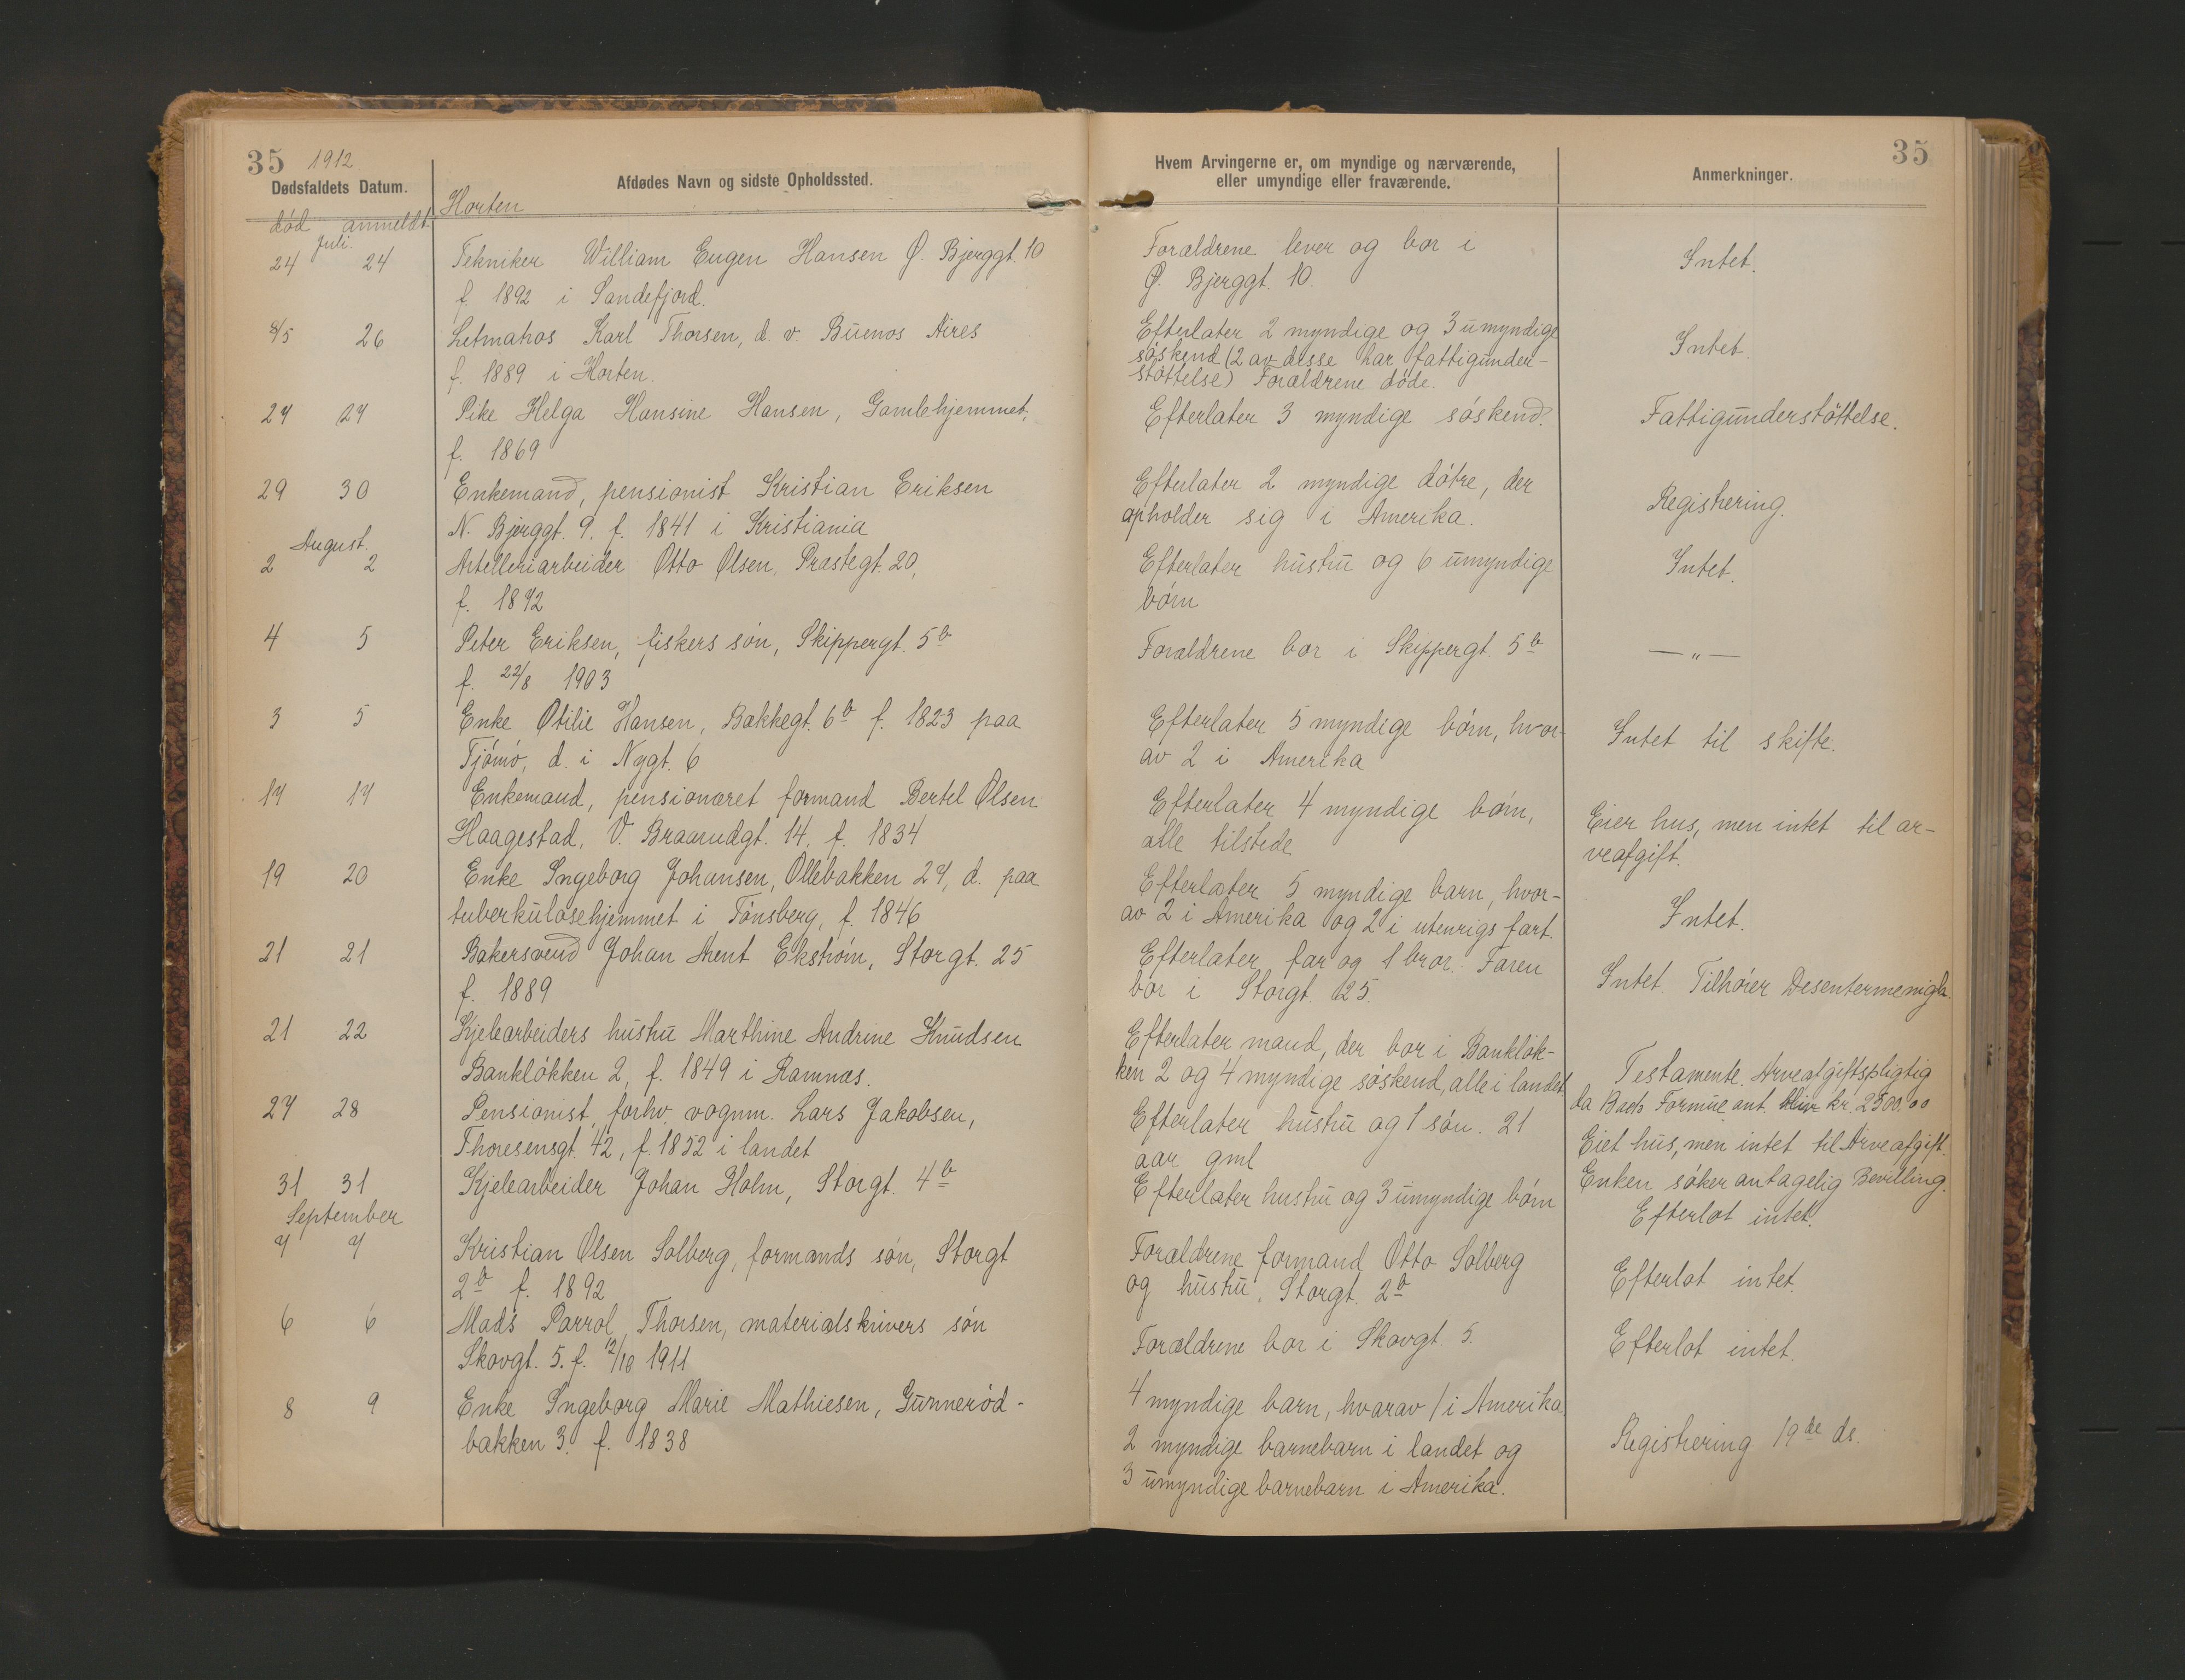 35 1912.
Dødsfaldets Datum.
Afdødes Navn og sidste Opholdssted.
Hvem Arvingerne er, om myndige og nærværende,
eller umyndige eller fraværende.
Anmerkninger.
35
død anmeldt
Horten
Juli.
24 24 Tekniker William Eugen Hansen Ø. Bjerggt. 10
f. 1892 i Sandefjord.
Forældrene lever og bor i
Ø. Bjerggt. 10.
Intet.
8/5 26 Letmatros Karl Thorsen, d. v. Buenos Aires
f. 1889 i Horten.
Efterlater 2 myndige og 3 umyndige
søskend (2 av disse har fattigunder-
støttelse) Forældrene døde.
Intet.
27 27 Pike Helga Hansine Hansen, Gamlehjemmet,
f. 1869
Efterlater 3 myndige søskend.
Fattigunderstøttelse.
29 30 Enkemand, pensionist Kristian Eriksen
N. Bjerggt. 9. f. 1841 i Kristiania
Efterlater 2 myndige døtre, der
opholder sig i Amerika.
Registrering.
August.
2 2 Artelleriarbeider Otto Olsen, Præstegt. 20,
f. 1872
Efterlater hustru og 6 umyndige
børn
Intet.
4 5 Peter Eriksen, fiskers søn, Skippergt. 5b
f. 22/8 1903
Forældrene bor i Skippergt. 5b
— „ —
3 5 Enke Otilie Hansen, Bakkegt. 6b f. 1823 paa
Tjømø, d. i Nygt. 6
Efterlater 5 myndige børn, hvor-
av 2 i Amerika
Intet til skifte.
17 17 Enkemand, pensioneret formand Bertel Olsen
Haagestad, V. Braarudgt. 14, f. 1834
Efterlater 4 myndige børn,
alle tilstede
Eier hus, men intet til ar-
veafgift.
19 20 Enke Ingeborg Johansen, Ollebakken 27, d. paa
tuberkulosehjemmet i Tønsberg, f. 1846
Efterlater 5 myndige barn, hvor-
av 2 i Amerika og 2 i utenrigs fart.
Intet.
21 21 Bakersvend Johan Arent Ekstrøm, Storgt. 25
f. 1889
Efterlater far og 1 bror. Faren
bor i Storgt. 25.
Intet. Tilhører Desentermenigh.
21 22 Kjelearbeiders hustru Marthine Andrine Knudsen
Bankløkken 2, f. 1849 i Ramnæs.
Efterlater mand, der bor i Bankløk-
ken 2 og 4 myndige søskend, alle i landet
Testamente. Arveafgiftspligtig
da Boets Formue ant. kr. 2500.00
27 28 Pensionist, forhv. vognm. Lars Jakobsen,
Thoresensgt. 42, f. 1852 i landet
Efterlater hustru og 1 søn. 21
aar gml
Eiet hus, men intet til Arveafgift.
Enken søker antagelig Bevilling.
31 31 Kjelearbeider Johan Holm, Storgt. 4b
Efterlater hustru og 3 umyndige børn
Efterlot intet.
September
7 7 Kristian Olsen Solberg, formands søn, Storgt
2b f. 1892
Forældrene formand Otto Solberg
og hustru, Storgt. 2b
Efterlot intet.
6 6 Mads Thorsen, materialskrivers søn
Skovgt. 5. f. 12/10 1911
Forældrene bor i Skovgt. 5.
Efterlot intet.
8 9 Enke Ingeborg Marie Mathiesen, Gunnerød-
bakken 3. f. 1838
4 myndige barn, hvorav 1 i Amerika.
2 myndige barnebarn i landet og
3 umyndige barnebarn i Amerika.
Registrering 19de ds.